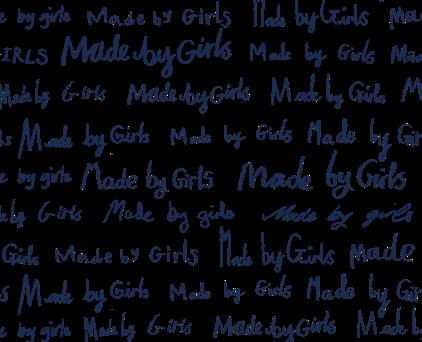 e by girls Made by Girls Made by Girls Mad
IRLS Made by Girls Made by Girls Mad
Made by Girls Made by Girls Made by Girls M
ls Made by Girls Made by Girls Made by Gir
e by girls Made by Girls Made by Girls
de by Girls Made by girls Made by girls
Girls Made by Girls Made by Girls Made
s Made by Girls Made by Girls Made by Gir
e by girls Made by Girls Made by Girls Made b